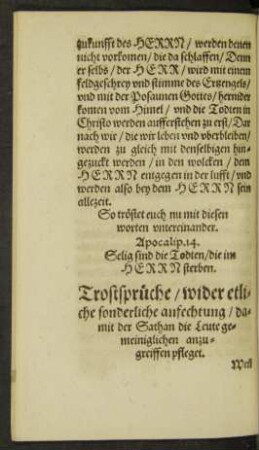 zukunfft des HERRN / werden denen
nicht vorkomen / die da schlaffen / Denn
er selbs / der HERR / wird mit einem
feldgeschrey vnd stimme des Ertzengels /
vnd mit der Posaunen Gottes / hernider
komen vom Himel / vnd die Todten in
Christo werden aufferstehen zu erst / Dar
nach wir / die wir leben vnd vberbleiben /
werden zu gleich mit denselbigen hin-
gezuckt werden / in den wolcken / dem
HERRN entgegen in der lufft / vnd
werden also bey dem HERRN sein
allezeit.
So tröstet euch nu mit diesen
worten vntereinander.
Apocalip. 14.
Selig sind die Todten / die im
HERRN sterben.
Trostsprüche / wider etli-
che sonderliche anfechtung / da-
mit der Sathan die Leute ge-
meiniglichen anzu-
greiffen pfleget.
Weil